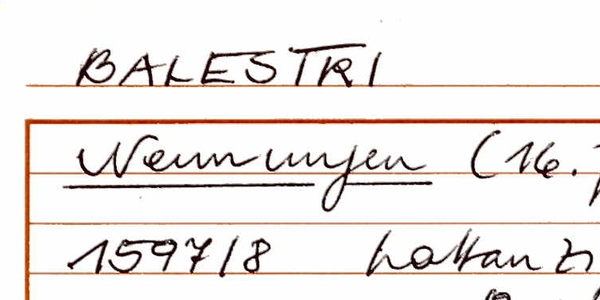 BALESTRI
Nennungen (16.
1597/8 Lattanzi